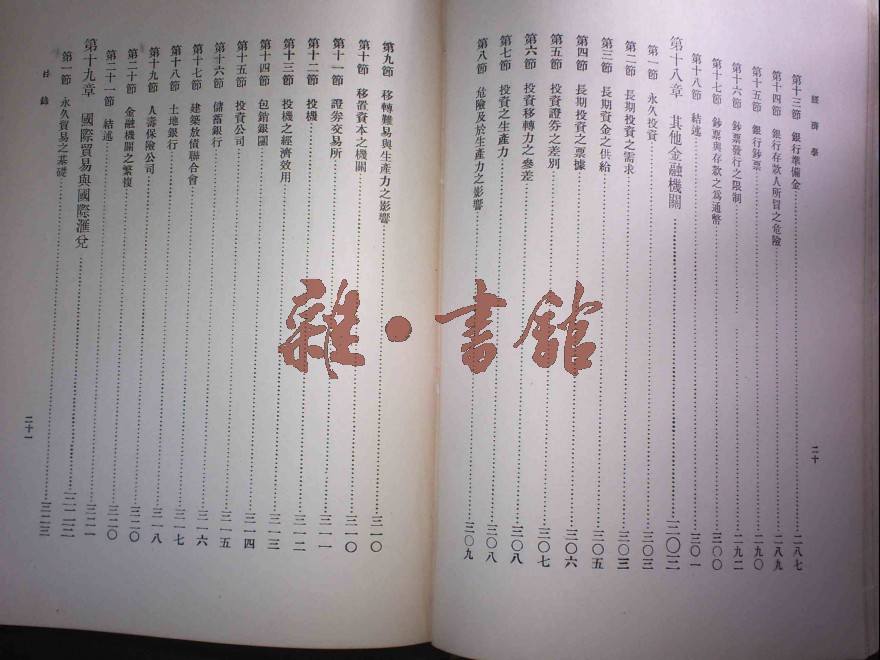 經濟學
第十三節 銀行準備金……二八七
第十四節 銀行存款人所冒之危險……二八九
第十五節 銀行鈔票……二九〇
第十六節 鈔票發行之限制……二九二
第十七節 鈔票與存款之爲通幣……三〇〇
第十八節 結述……三〇一
第十八章 其他金融機關……三〇三
第一節 永久投資……三〇三
第二節 長期投資之需求……三〇三
第三節 長期資金之供給……三〇五
第四節 長期投資之票據……三〇六
第五節 投資證券之差別……三〇七
第六節 投資移轉力之參差……三〇八
第七節 投資之生產力……三〇八
第八節 危險及於生產力之影響……三〇九
二十
第九節 移轉難易與生產力之影響……三一〇
第十節 移置資本之機關……三一〇
第十一節 證券交易所……三一一
第十二節 投機……三一二
第十三節 投機之經濟效用……三一三
第十四節 包銷銀團……三一四
第十五節 投資公司……三一五
第十六節 儲蓄銀行……三一六
第十七節 建築放債聯合會……三一六
第十八節 土地銀行……三一七
第十九節 人壽保險公司……三一八
第二十節 金融機關之繁複……三二〇
第二十一節 結述……三二〇
第十九章 國際貿易與國際滙兌……三二一
第一節 永久貿易之基礎……三二三
目錄
二十一
雜·書館